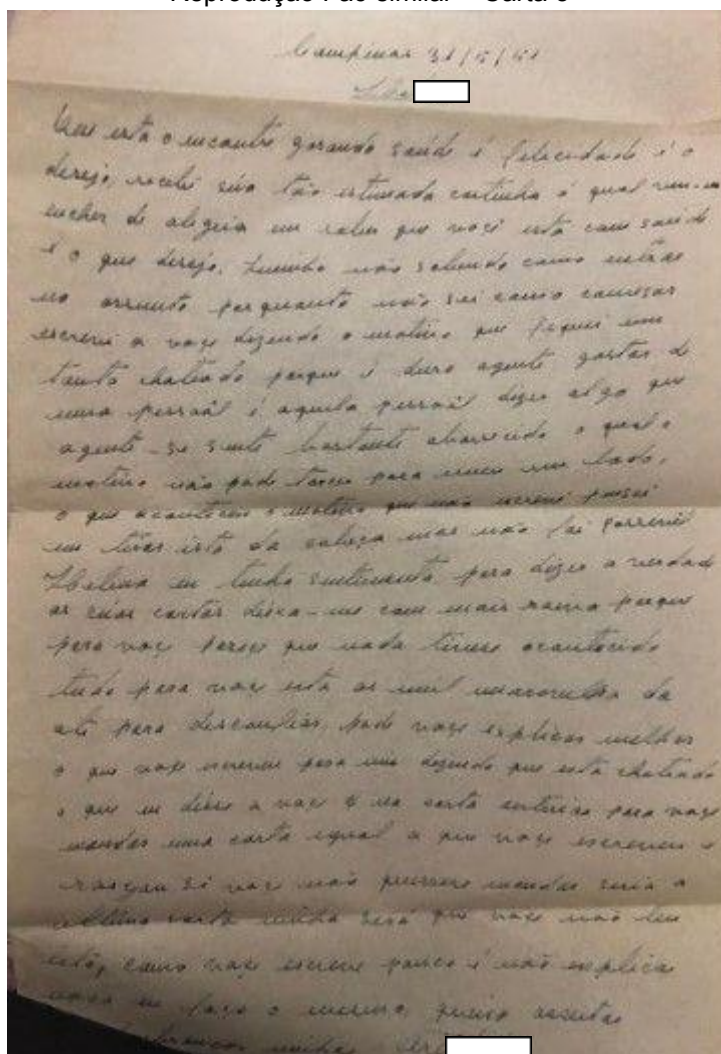 Reprodução Fac-similar – Carta 3
Campinas 31/5/51
Que esta o encontre gosando saúde é felecidade é o
desejo, recebi sua tão estimada cartinha á qual
encher de alegria em saber que voçê está com saude
é o que desejo, não sabendo como entrar
no assunto porquanto não sei como começar
escrevi a voçe dizendo o motivo que fiquei um
tanto chatiado porque é duro agente gostar de
uma pessoál é aquela pessoál dizer algo que
agente se sente bastante aborrecido o qual o
motivo não pode torcer para nem um lado,
o que acontecin o motivo que não escrevi pensei
em tirar isto da cabeça mas não foi possivel
eu tenho sentimento para dizer a verdade
as suas cartas deixa-me com mais raiva porque
para voçe pareçe que nada tivese acontecido
tudo para voçe está as mil maravilha da
até para descomfiar, pode voçe esplicar melhor
o que voçe escreveu para mim dizendo que está chatiado
o que eu disse a voçe é na carta anterior para voçe
mandar uma carta egual a que voçe escreveu e
rasgou si voçe não mandar seria a
ultima carta minha será que voçe não leu
esta, como voçe escreve pouco é não esplica
nada eu faço o mesmo, queira aceitar